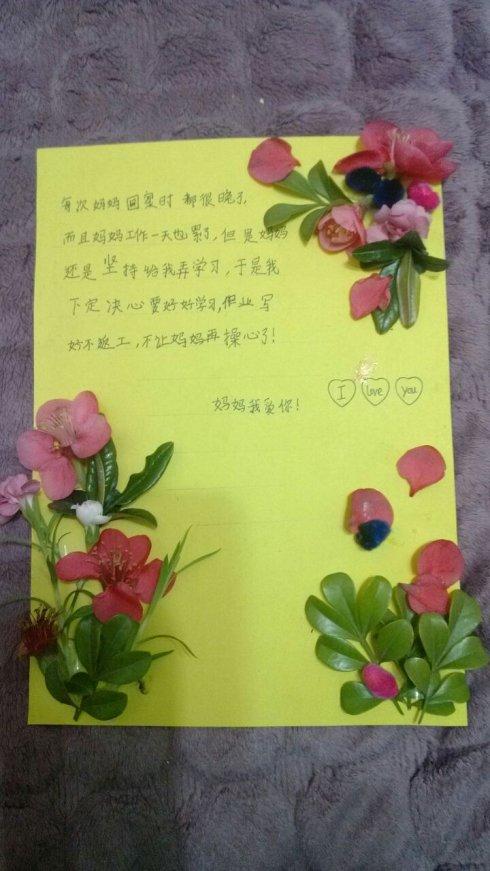 每次妈妈回家时都很晚了,
而且妈妈工作一天也累了,但是妈妈
还是坚持给我弄学习,于是我
下定决心要好好学习,作业写
好不返工,不让妈妈再操心了!
妈妈我爱你!
I love you